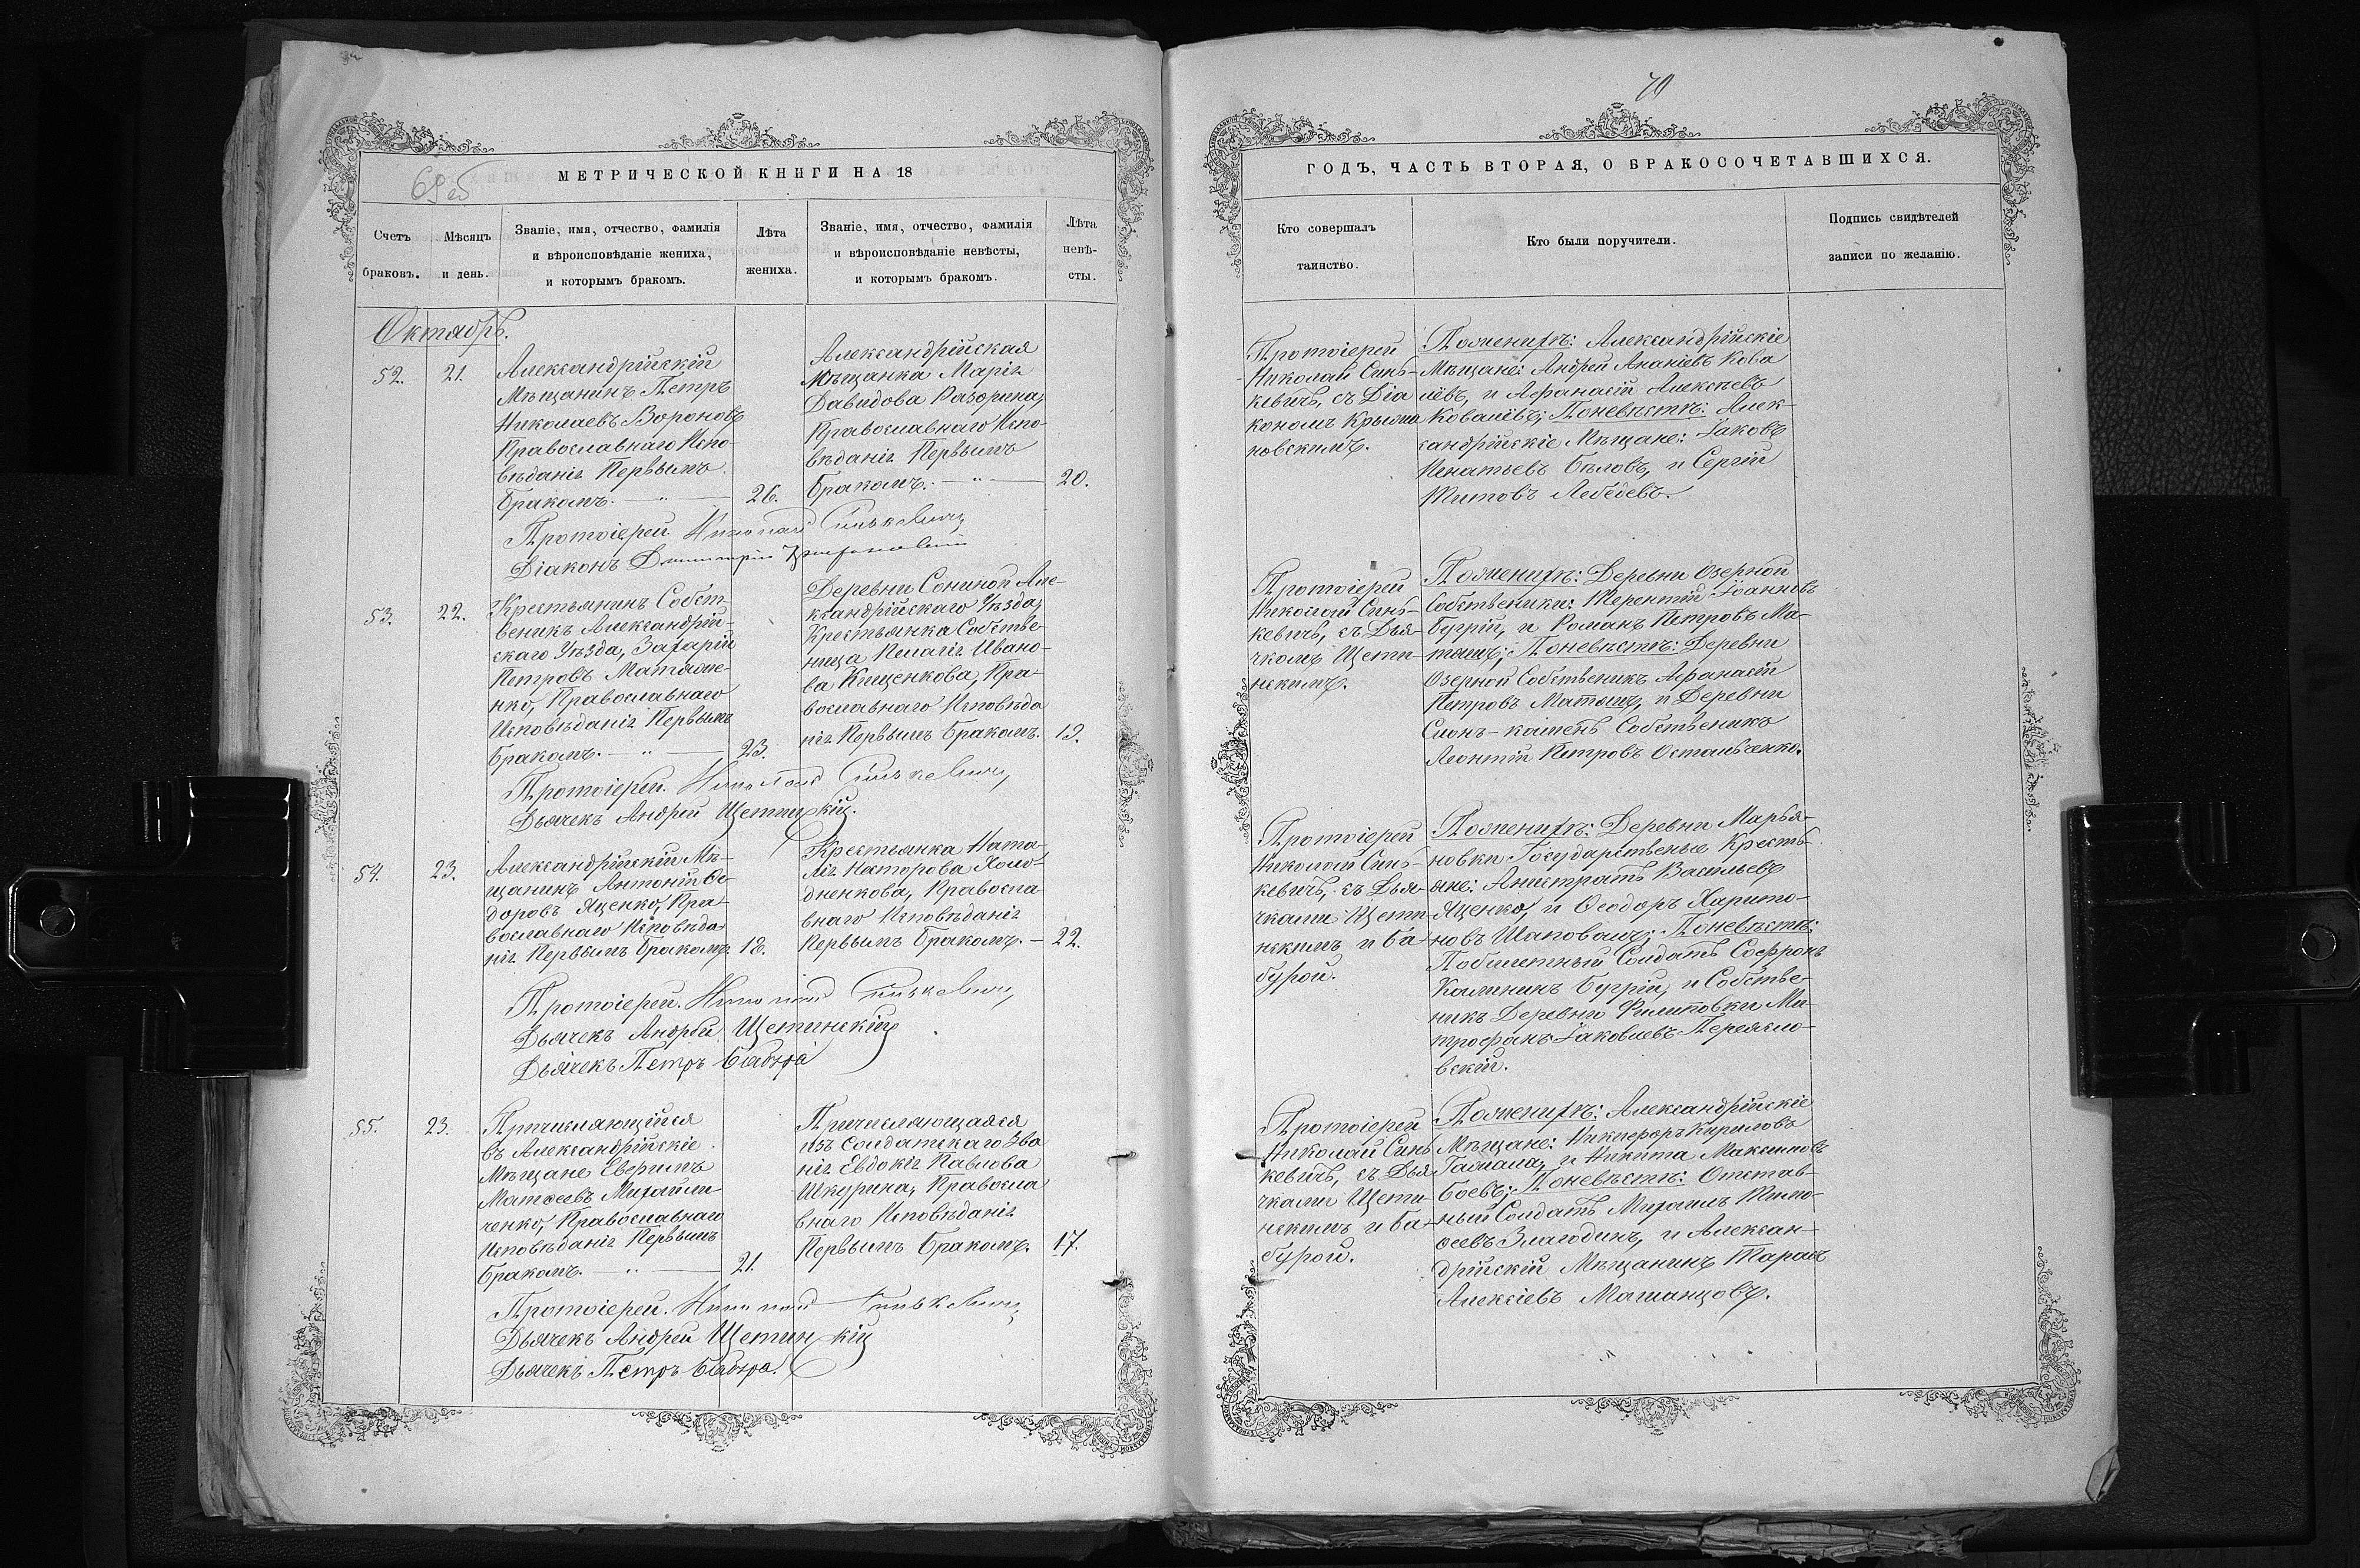 69об
МЕТРИЧЕСКОЙ КНИГИ НА 18
Счетъ браковъ.
Мѣсяцъ и день.
Званіе, имя, отчество, фамилія
и вѣроисповѣданіе жениха,
и которымъ бракомъ.
Лѣта
жениха.
Званіе, имя, отчество, фамилія
и вѣроисповѣданіе невѣсты,
и которымъ бракомъ.
Лѣта
невѣ-
сты.
Октябрь.
52. 21.
Александрійскій
Мѣщанинъ Петръ
Николаевъ Вороновъ,
Православнаго Испо-
вѣданія Первымъ
Бракомъ. — „ — 26.
Александрійская
Мѣщанка Марія
Давидова Разорина,
Православнаго Испо-
вѣданія Первымъ
Бракомъ. — „ — 20.
Протоіерей Николай Синькевичъ
Діаконъ Димитрій
53. 22.
Крестьянинъ Собст-
веникъ Александрій-
скаго Уѣзда, Захарій
Петровъ Матяше-
нко, Православнаго
Исповѣданія Первымъ
Бракомъ. — „ — 23.
Деревни Сониной Але-
ксандрійскаго Уѣзда,
Крестьянка Собстве-
ница Пелагія Ивано-
ва Кищенкова, Пра-
вославнаго Исповѣда
нія Первымъ Бракомъ. 19.
Протоіерей Николай Синькевичъ,
Дьячекъ Андрей Щетинскій.
54. 23.
Александрійскій Мѣ-
щанинъ Антоній Ѳе-
доровъ Яценко, Пра-
вославнаго Исповѣда-
нія Первымъ Бракомъ. 18.
Крестьянка Ната
лія Наторова Холо-
дненкова, Правосла-
внаго Исповѣданія
Первымъ Бракомъ. — 22.
Протоіерей Николай Синькевичъ,
Дьячекъ Андрей Щетинскій
Дьячекъ Петръ Бабура
55. 23.
Причисляющійся
въ Александрійскіе
Мѣщане Евфимъ
Матѳеевъ Михайли-
ченко, Православнаго
Исповѣданія Первымъ
Бракомъ. — „ — 21.
Причисляющаяся
изъ солдатскаго зва
нія Евдокія Павлова
Шкурина, Правосла
внаго Исповѣданія
Первымъ Бракомъ. 17.
Протоіерей Николай Синькевичъ,
Дьячекъ Андрей Щетинскій
Дьячекъ Петръ Бабура.
70
ГОДЪ, ЧАСТЬ ВТОРАЯ, О БРАКОСОЧЕТАВШИХСЯ.
Кто совершалъ
таинство.
Кто были поручители.
Подпись свидѣтелей
записи по желанію.
Протоіерей
Николай Синь-
кевичъ, съ Діа
кономъ Крыжа
новскимъ.
По женихѣ: Александрійскіе
Мѣщане: Андрей Ананіевъ Кова
лёвъ, и Афанасій Алексѣевъ
Ковалёвъ; По невѣстѣ: Алек-
сандрійскіе Мѣщане: Іаковъ
Игнатьевъ Бѣловъ, и Сергій
Титовъ Лебедевъ.
Протоіерей
Николай Синь-
кевичъ, съ Дья-
чкомъ Щети-
нскимъ.
По женихѣ: Деревни Озерной
Собственики: Терентій Іоанновъ
Бугрій, и Романъ Петровъ Ма-
тяшъ; По невѣстѣ: Деревни
Озерной Собственикъ Афанасій
Петровъ Матяшъ, и Деревни
Слонъ-камень Собственикъ
Леонтій Петровъ Остапченко.
Протоіерей
Николай Синь-
кевичъ, съ Дья-
чками Щети-
нскимъ и Ба-
бурой.
По женихѣ: Деревни Марья-
новки Государственые Кресть-
яне: Анистратъ Васильевъ
Яценко, и Ѳеодоръ Харито-
новъ Шаповалъ; По невѣстѣ:
Побилетный Солдатъ Софронъ
Калининъ Бугрій, и Собстве-
никъ Деревни Филиповки Ми-
трофанъ Іаковлевъ Переясло-
вскій.
Протоіерей
Николай Синь
кевичъ, съ Дья
чками Щети-
нскимъ и Ба-
бурой.
По женихѣ: Александрійскіе
Мѣщане: Никифоръ Кириловъ
Галмала, и Никита Максимовъ
Боевъ; По невѣстѣ: Отстав-
ный Солдатъ Михаилъ Тимо-
ѳеевъ Злагодинъ, и Алексан-
дрійскій Мѣщанинъ Тарасъ
Алексіевъ Маманцовъ.